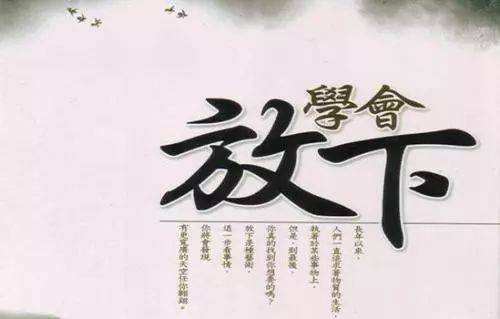 學會
放下
長年以來，
人們一直追求著物質的生活，
執著於某些事物上，
但是，到最後，
你真的找到你想要的嗎？
放下是種藝術，
退一步看事情，
你將會發現
有更寬廣的天空任你翱翔。